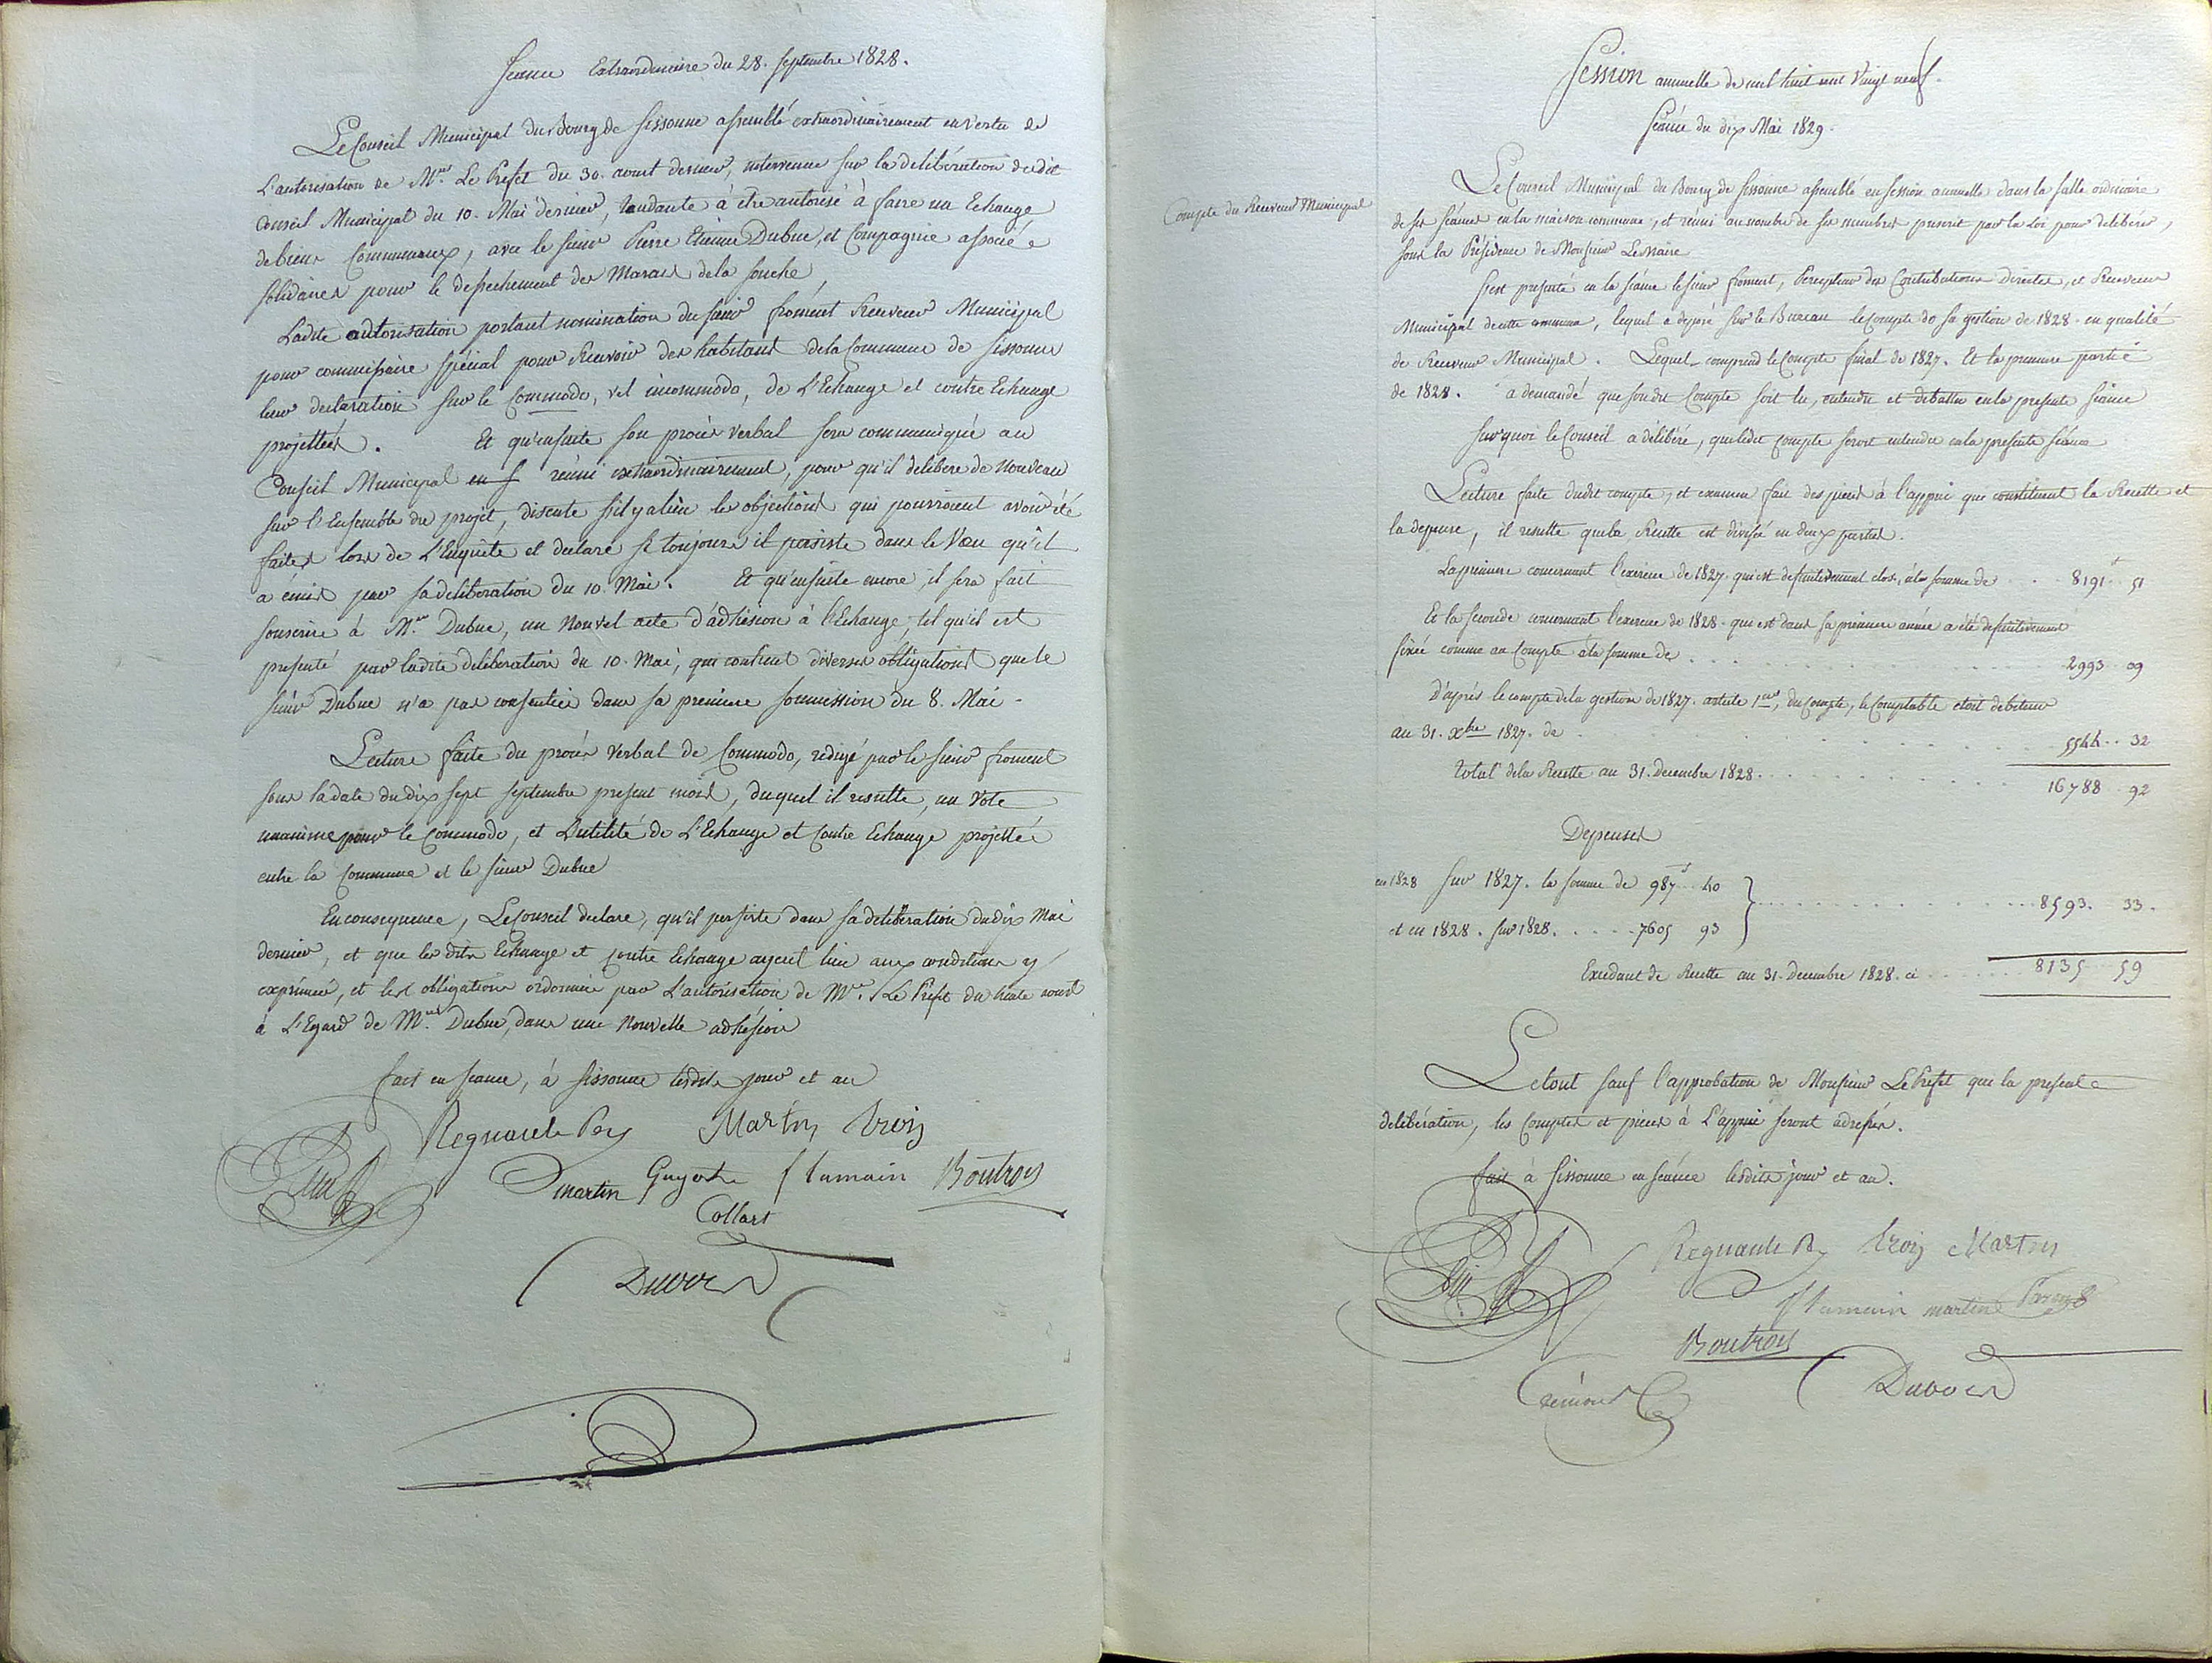 Séance Extraordinaire du 28. Septembre 1828.
Le Conseil Municipal du Bourg de Sissonne assemblé extraordinairement en vertu de
L'autorisation de Mr. Le Prefet du 30. aout dernier, intervenue sur la deliberation dudit
Conseil Municipal du 10. Mai dernier, tendante à être autorisé à faire un Echange
de biens Communaux, avec le sieur Pierre Etienne Dubuc, et Compagnie associés
solidaires pour le dessechement des Marais de la Souche
Ladite autorisation portant nomination du sieur froment Receveur Municipal
pour commissaire spécial pour Recevoir des habitants de la Commune de Sissonne
leur declaration sur le Commodo, vel incommodo, de L'Echange et contre Echange
projettés. Et qu'ensuite son procès verbal sera communiqué au
Conseil Municipal en s réuni extraordinairement, pour qu'il delibere de nouveau
sur l'Ensemble du projet, discute s'il y a lieu les objections qui pourroient avoir été
faites lors de L'Enquête et declare si toujours il persiste dans le Vœu qu'il
a émis par sa deliberation du 10. Mai. Et qu'ensuite encore, il sera fait
souscrire à Mr. Dubuc, un Nouvel acte d'adhésion à l'Echange, tel qu'il est
presenté par ladite deliberation du 10. Mai, qui contient diverses obligations que le
sieur Dubuc n'a pas consenties dans sa premiere soumission du 8. Mai.
Lecture faite du procès verbal de Commodo, redigé par le sieur froment
sous la date du dix sept septembre present mois, duquel il resulte, un Vote
unanime pour le Commodo, et L'utilité de L'Echange et Contre Echange projetté
entre la Commune et le sieur Dubuc
En consequence, Le Conseil declare, qu'il persiste dans sa deliberation du dix Mai
dernier, et que les dits Echange et contre Echange ayent lieu aux conditions y
exprimées, et les obligations ordonnées par L'autorisation de Mr. Le Prefet du trente aout
à L'Egard de Mr. Dubuc, dans une Nouvelle adhésion
fait en seance, à Sissonne lesdits jour et an
Regnault Martin
Martin Guyot flamain Boutroy
Collart
Session annuelle de mil huit cent Vingt neuf.
Séance du dix Mai 1829.
Compte du Receveur Municipal
Le Conseil Municipal du Bourg de Sissonne assemblé en session annuelle dans la salle ordinaire
de ses séances en la maison commune, et reuni au nombre de ses membres prescrit par la Loi pour deliberer,
sous la Présidence de Monsieur Le Maire
S'est presenté en la séance le sieur froment, Percepteur des Contributions Directes, et Receveur
Municipal de cette commune, lequel a deposé sur le Bureau le compte de sa gestion de 1828. en qualité
de Receveur Municipal. Lequel comprend le Compte final de 1827. Et la premiere partie
de 1828. a demandé que son dit Compte soit lu, entendu et debattu en la presente séance
Sur quoi le Conseil a délibéré, que ledit compte seroit entendu en la presente séance
Lecture faite dudit compte, et examen fait des pieces à l'appui que constituent la Recette et
la depense, il resulte que la Recette est divisée en deux parties.
La premiere concernant l'exercice de 1827. qui est definitivement clos, à la somme de . . . 8191 f 51
Et la seconde concernant l'exercice de 1828. qui est dans sa premiere année a été definitivement
fixée comme au Compte à la somme de . . . 2993 . 09
D'après le compte de la gestion de 1827. article 1er, du Compte, le Comptable étoit debiteur
au 31. Xbre 1827. de . . . 5544 . . 32
Total de la Recette au 31. Decembre 1828. . . . 16788 . 92
Depenses
en 1828 sur 1827. la somme de 987 f . . 40
et en 1828. sur 1828. . . . 7605 93
8593. 33.
Excedant de Recette au 31. Decembre 1828. ci . . . 8135 . 59
Le tout sauf l'approbation de Monsieur Le Prefet que la presente
deliberation, les Comptes et pieces à L'appui seront adressés.
fait à Sissonne en séance lesdits jour et an.
Regnault Martin
flamain martin
Boutroy